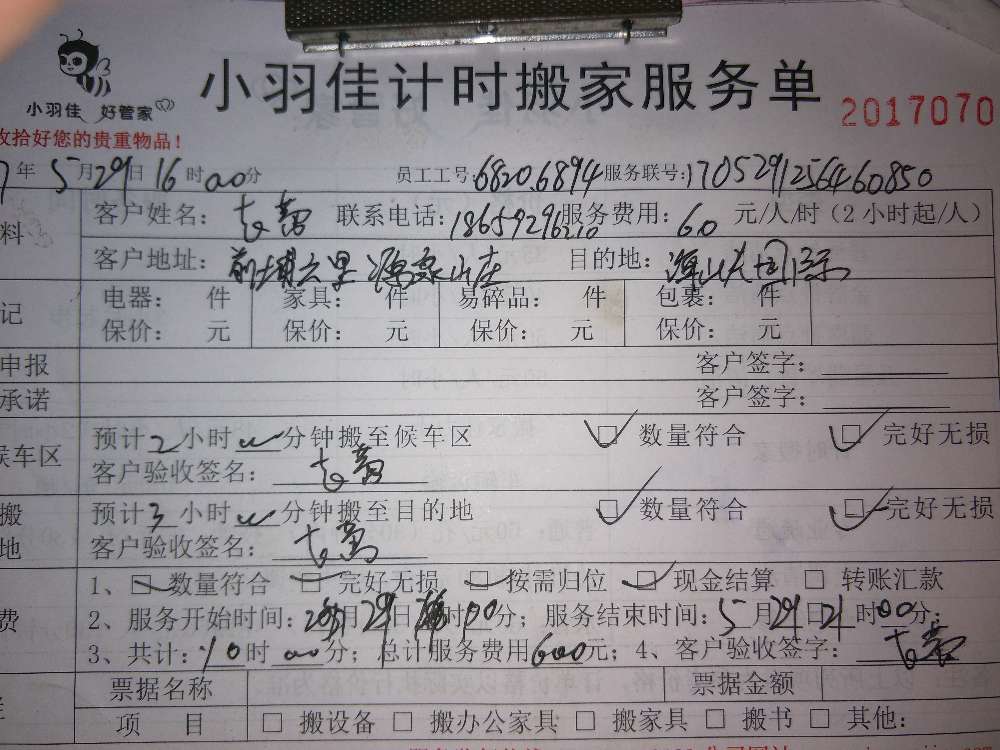 小羽佳 好管家
小羽佳计时搬家服务单
2017070
收拾好您的贵重物品!
7年5月29日16时00分 员工工号:6820.6894 服务联号:1705291256460850
料 客户姓名: 联系电话:18659296210 服务费用:60元/人/时(2小时起/人)
客户地址:前埔六里 目的地:
记 电器: 件 家具: 件 易碎品: 件 包裹: 件
保价: 元 保价: 元 保价: 元 保价: 元
申报 客户签字:
承诺 客户签字:
候车区 预计2小时00分钟搬至候车区 数量符合 完好无损
客户验收签名:
搬 预计3小时00分钟搬至目的地 数量符合 完好无损
地 客户验收签名:
1、数量符合 完好无损 按需归位 现金结算 转账汇款
费 2、服务开始时间: 月29日 时00分;服务结束时间:5月29日21时00分;
3、共计:10时00分;总计服务费用600元;4、客户验收签字:
票据名称 票据金额
项 目 搬设备 搬办公家具 搬家具 搬书 其他: